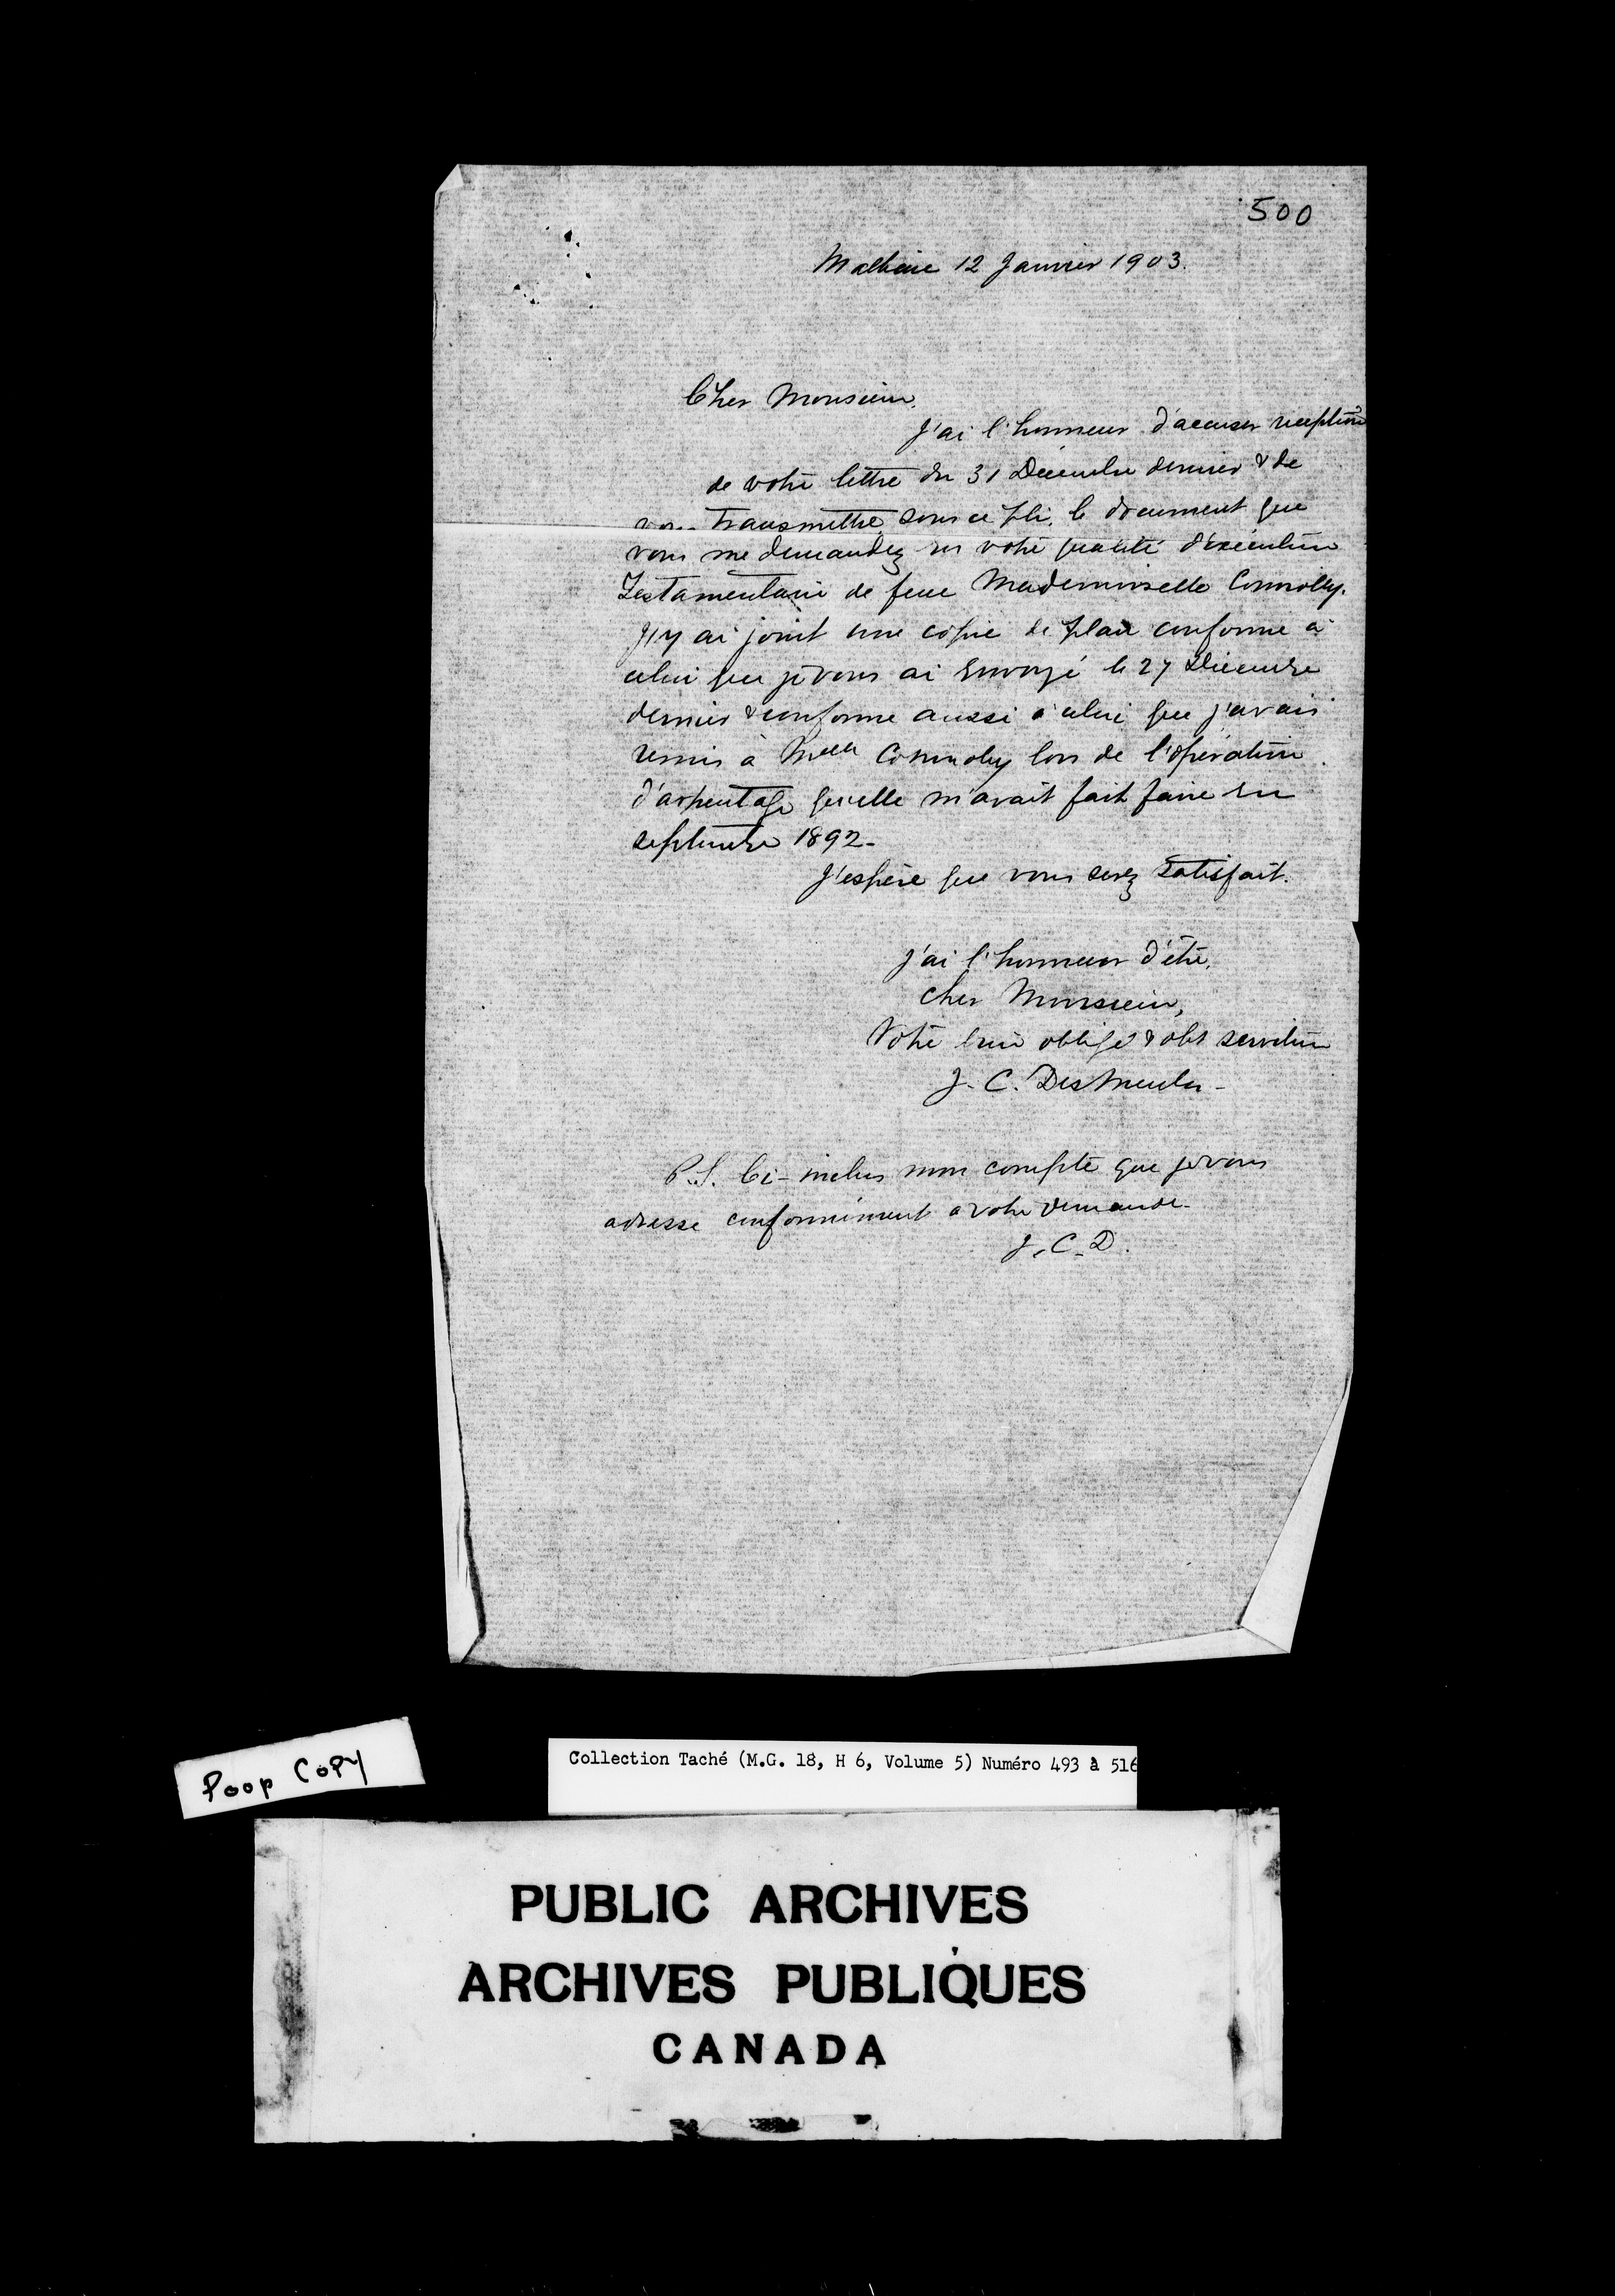 500
Malbaie 12 Janvier 1903.
Cher Monsieur,
J'ai l'honneur d'accuser reception
de votre lettre du 31 Décembre dernier & de
vous transmettre sous ce pli, le document que
vous me demandez en votre qualité d'exécuteur
Testamentaire de feue Mademoiselle Connolly.
J'y ai joint une copie de plan conforme à
celui que je vous ai envoyé le 27 Décembre
dernier & conforme aussi à celui que j'avais
remis à Melle Connolly lors de l'opération
d'arpentage qu'elle m'avait fait faire en
septembre 1892-
J'espère que vous serez satisfait.
J'ai l'honneur d'être,
Cher Monsieur,
Votre bien obligé & obt serviteur
J. C. DesMeules-
P.S. Ci-inclus mon compte que je vous
adresse conformément à votre demande-
J. C. D.
Poor Copy
Collection Taché (M.G. 18, H 6, Volume 5) Numéro 493 à 516
PUBLIC ARCHIVES
ARCHIVES PUBLIQUES
CANADA